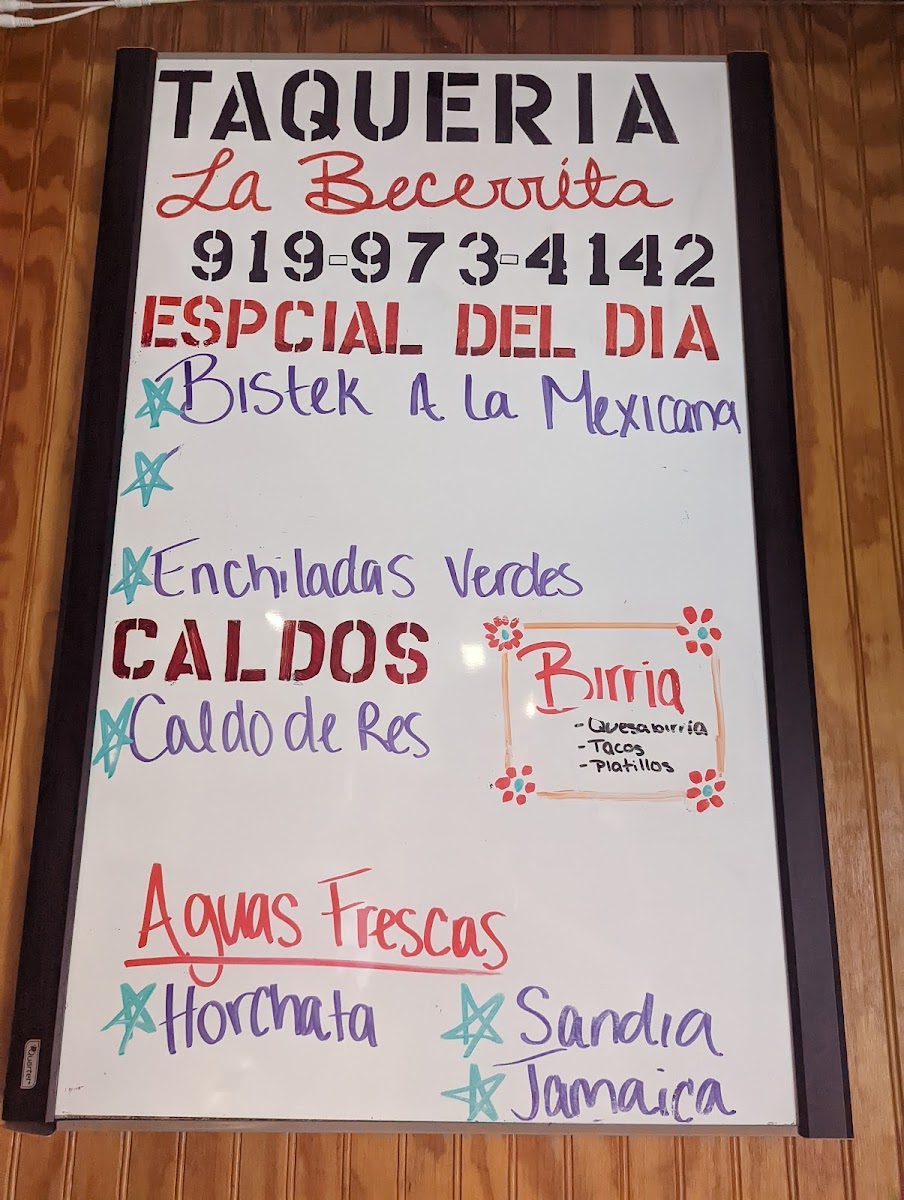 TAQUERIA
La Becerrita
919-973-4142
ESPCIAL DEL DIA
Bistek A la Mexicana
Enchiladas Verdes
CALDOS
Caldo de Res
Birria
- Quesabirria
- Tacos
- Platillos
Aguas Frescas
Horchata
Sandia
Jamaica
Quartet